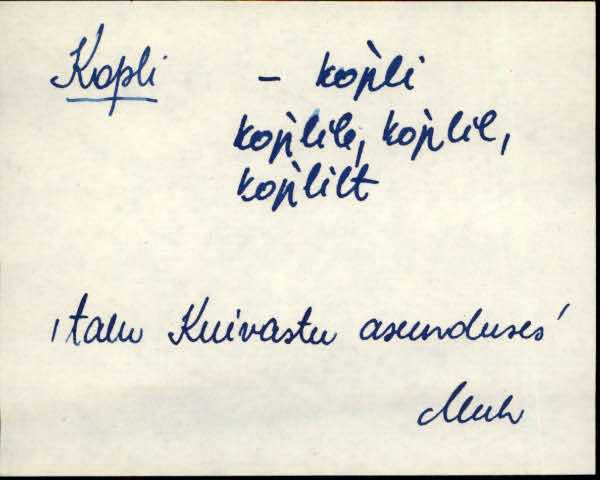 Kopli - kop̀li
kop̀lile, kop̀lil,
kop̀lilt
'talu Kuivastu asunduses'
Muh